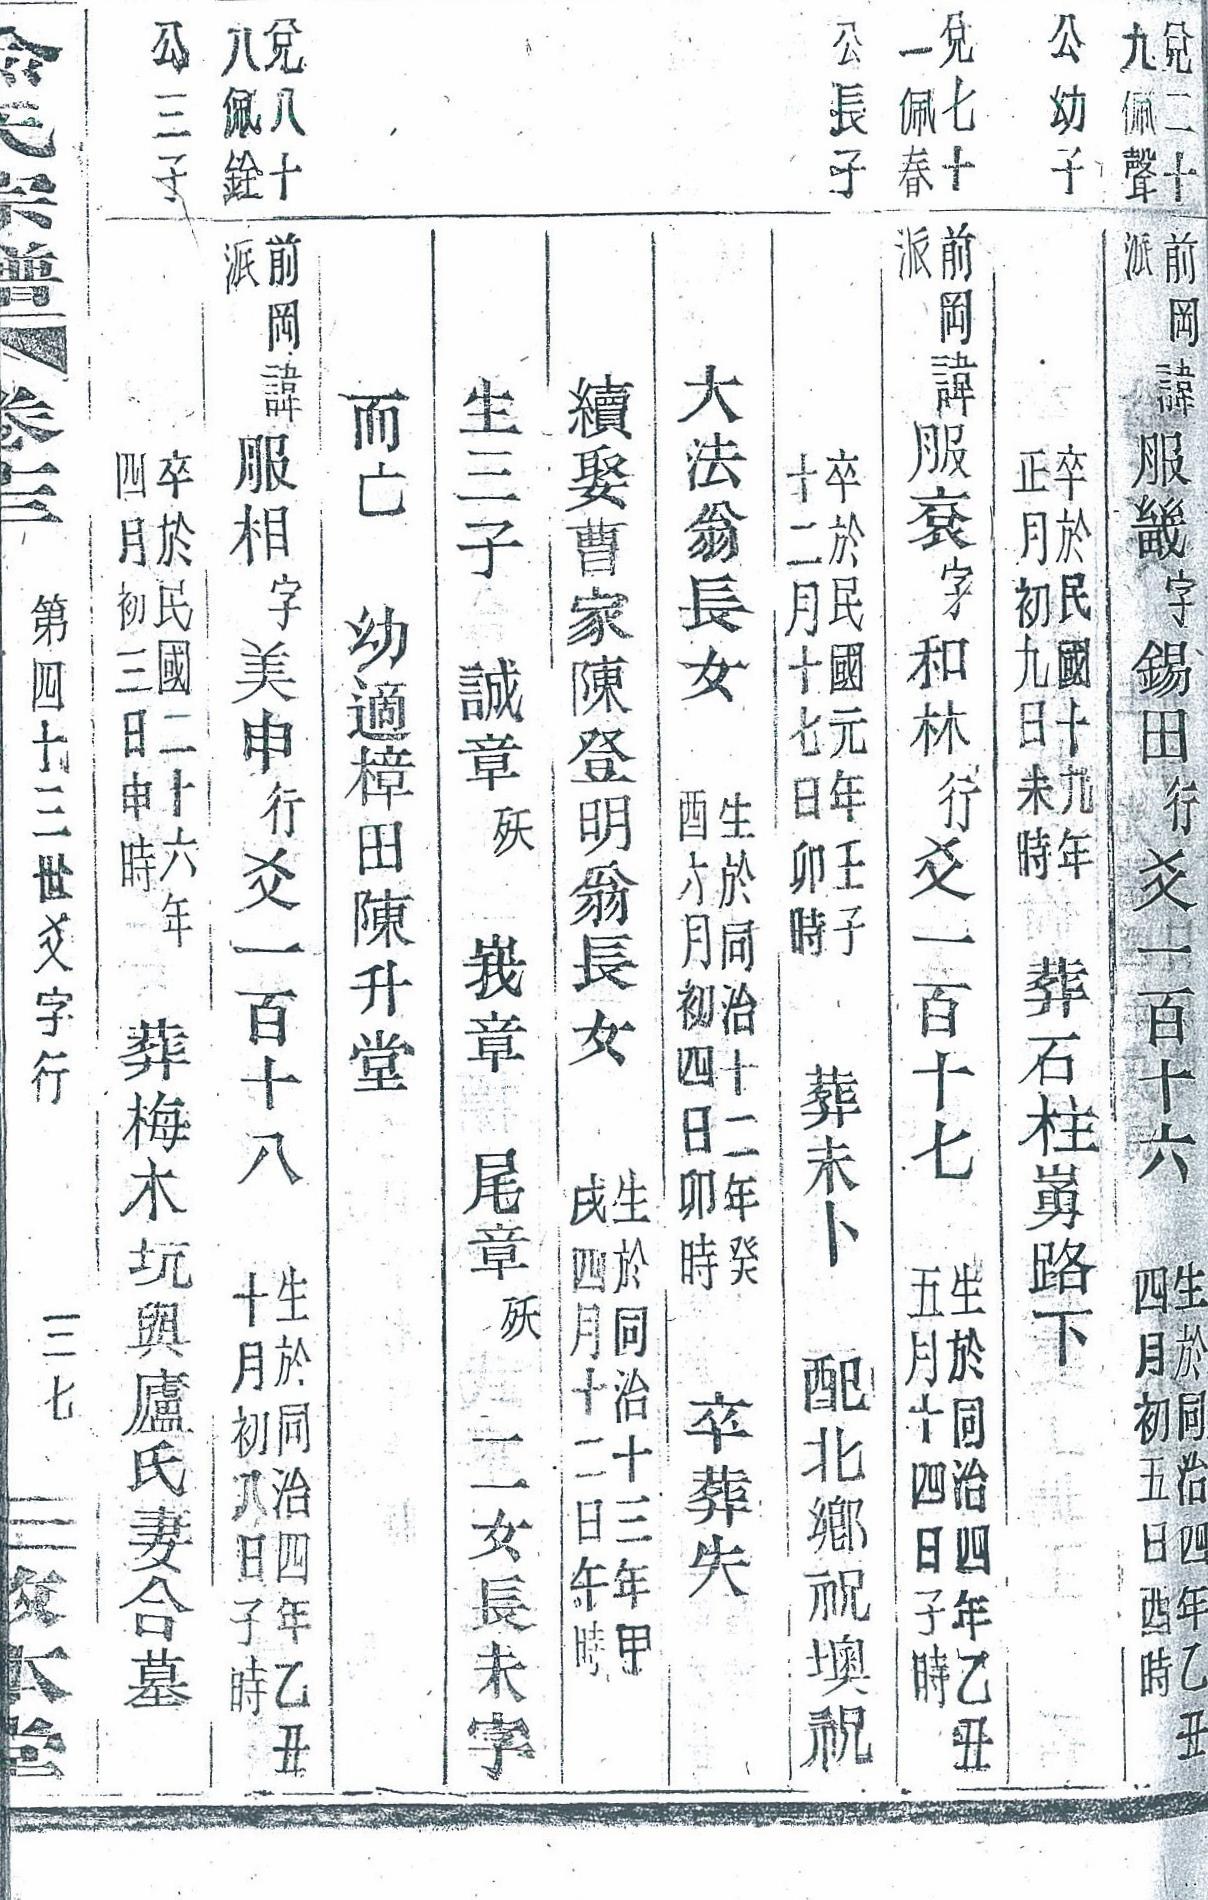 兌二十
九佩聲
公幼子
兌七十
一佩春
公長子
兌八十
八佩銓
公三子
前岡派諱服畿字錫田行爻一百十六 生於同治四年乙丑四月初五日酉時
卒於民國十九年正月初九日未時 葬石柱嶲路下
前岡派諱服袞字和林行爻一百十七 生於同治四年乙丑五月十四日子時
卒於民國元年壬子十二月十七日卯時 葬未卜 配北鄉祝墺祝
大法翁長女 生於同治十二年癸酉六月初四日卯時 卒葬失
續娶曹家陳登明翁長女 生於同治十三年甲戌四月十二日午時
生三子 誠章 殀 峩章 尾章 殀 二女長未字
而亡 幼適樟田陳升堂
前岡派諱服相字美申行爻一百十八 生於同治四年乙丑十月初八日子時
卒於民國二十六年四月初三日申時 葬梅木坑與廬氏妻合墓
俞氏宗譜 卷三 第四十三世爻字行 三七 敦本堂